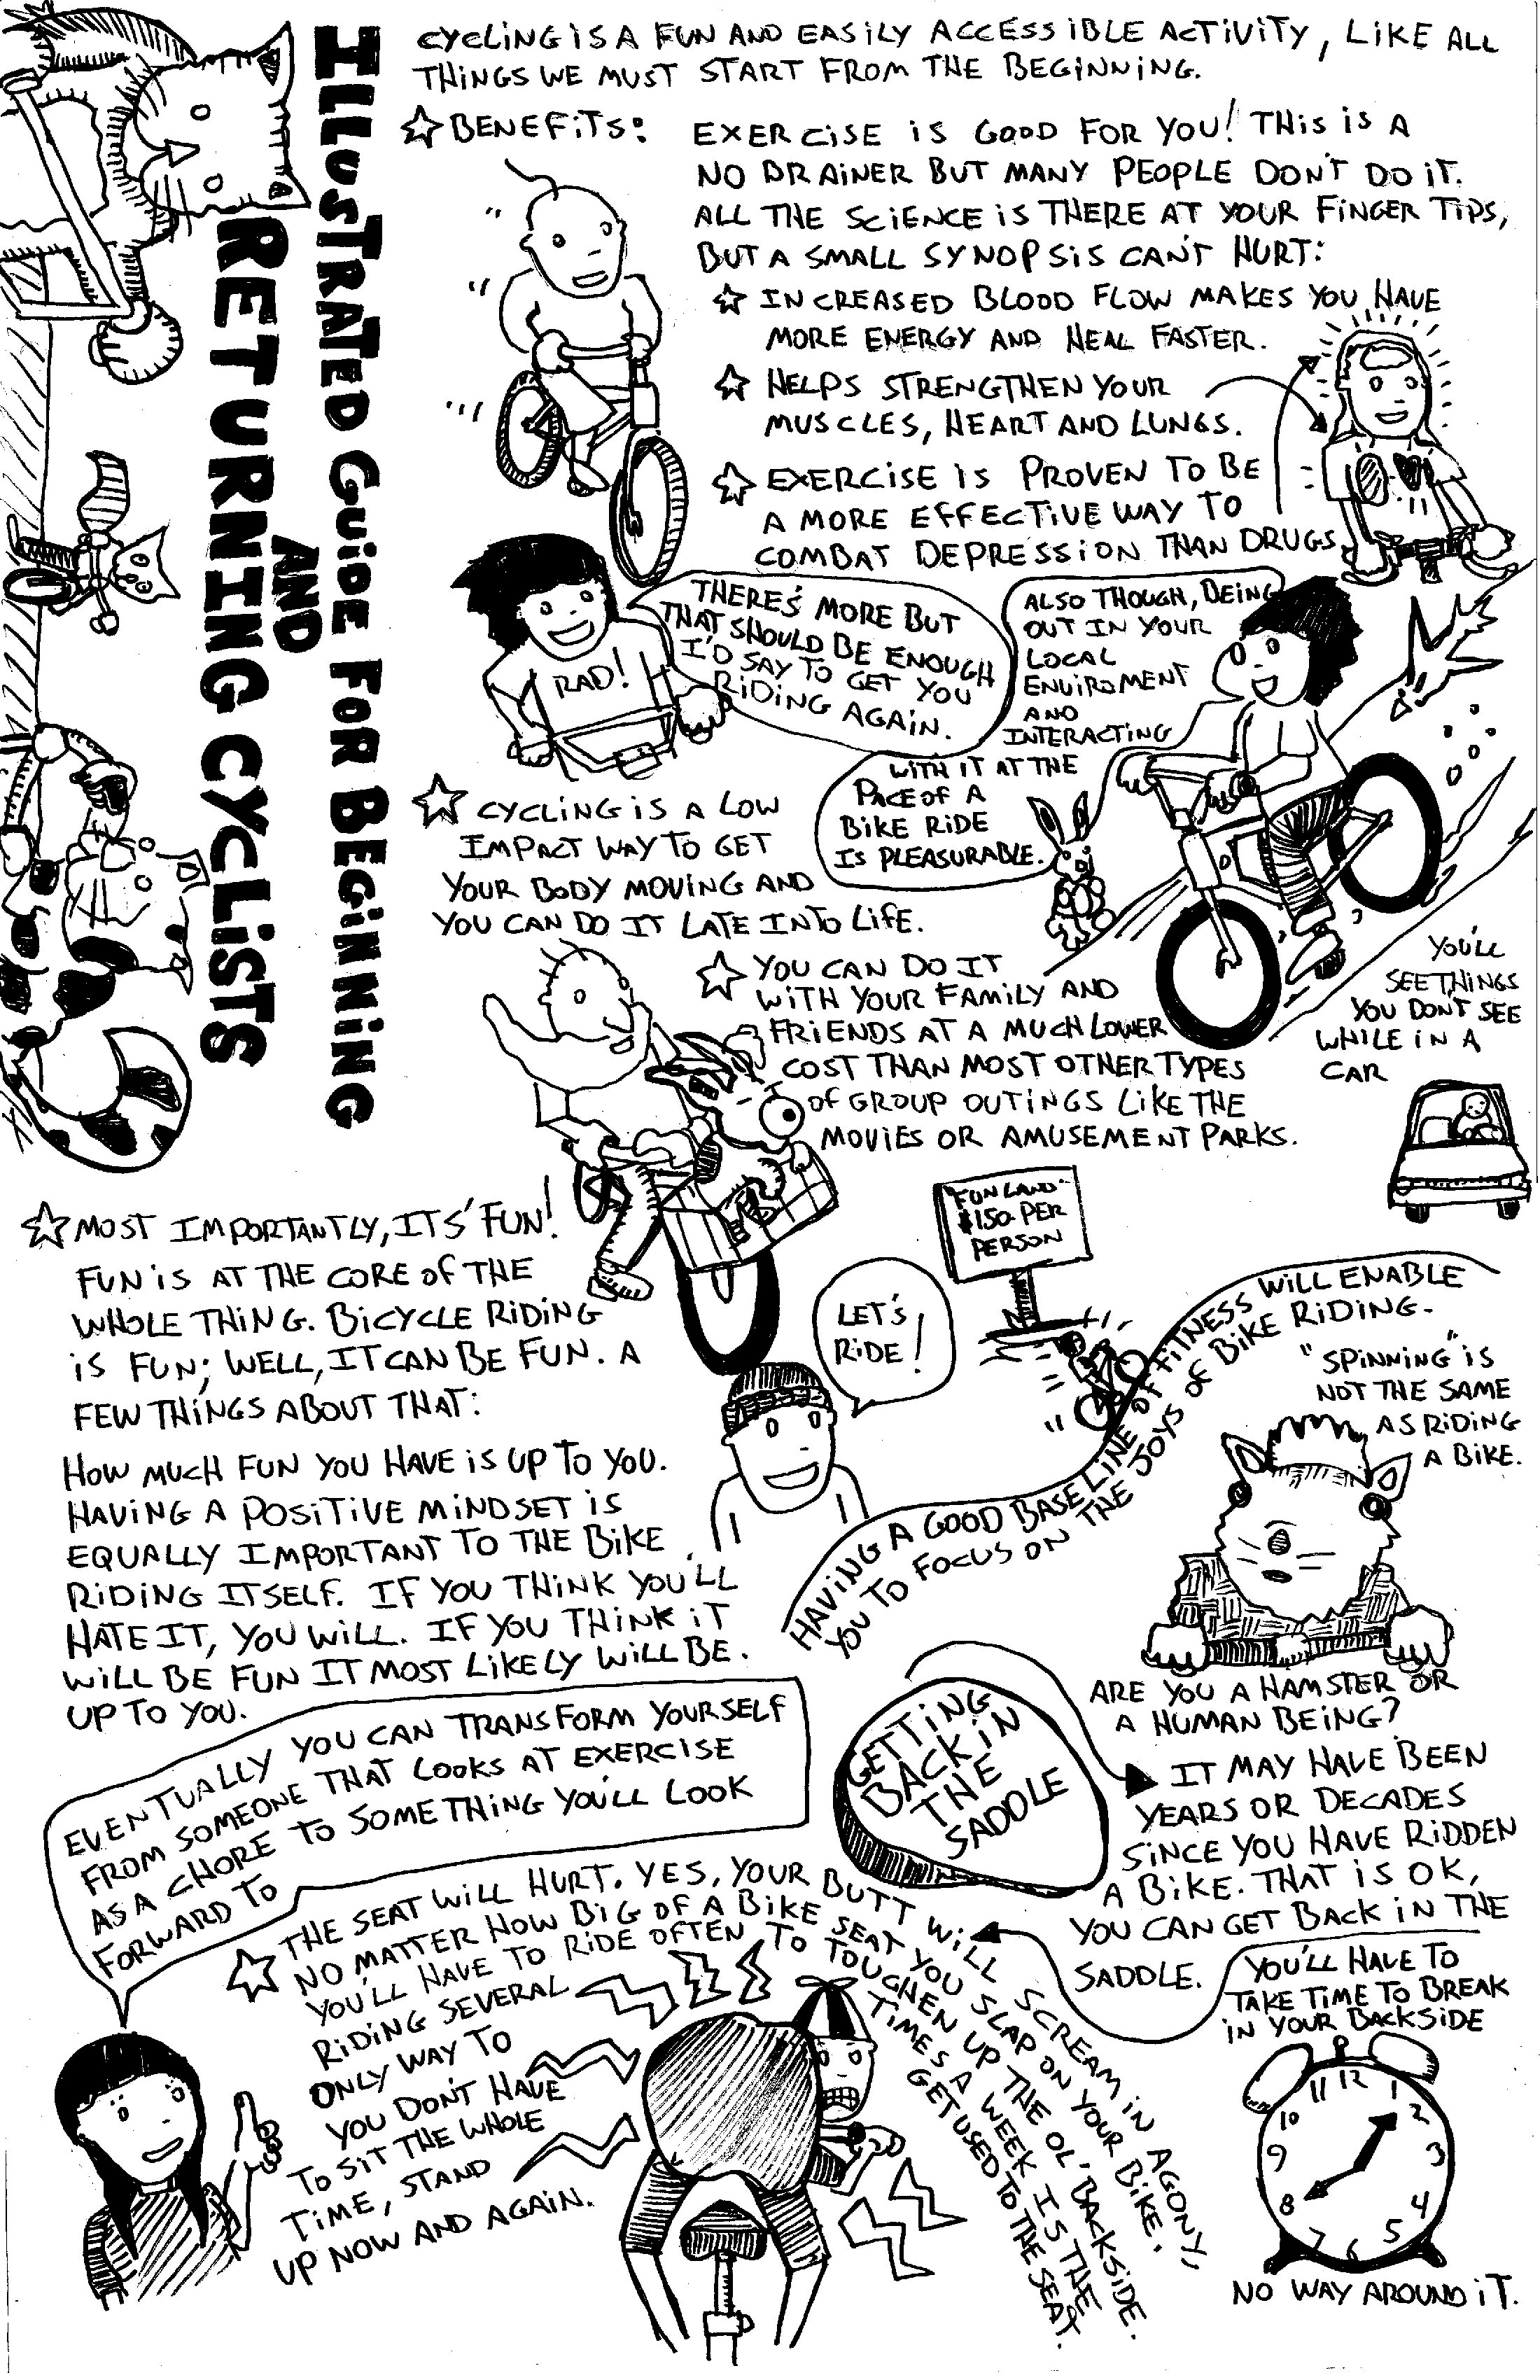 ILLUSTRATED GUIDE FOR BEGINNING
AND
RETURNING CYCLISTS
CYCLING IS A FUN AND EASILY ACCESSIBLE ACTIVITY, LIKE ALL
THINGS WE MUST START FROM THE BEGINNING.
☆ BENEFITS:
EXERCISE IS GOOD FOR YOU! THIS IS A
NO BRAINER BUT MANY PEOPLE DON'T DO IT.
ALL THE SCIENCE IS THERE AT YOUR FINGER TIPS,
BUT A SMALL SYNOPSIS CAN'T HURT:
☆ INCREASED BLOOD FLOW MAKES YOU HAVE
MORE ENERGY AND HEAL FASTER.
☆ HELPS STRENGTHEN YOUR
MUSCLES, HEART AND LUNGS.
☆ EXERCISE IS PROVEN TO BE
A MORE EFFECTIVE WAY TO
COMBAT DEPRESSION THAN DRUGS
RAD!
THERE'S MORE BUT
THAT SHOULD BE ENOUGH
I'D SAY TO GET YOU
RIDING AGAIN.
ALSO THOUGH, BEING
OUT IN YOUR
LOCAL
ENVIROMENT
AND
INTERACTING
WITH IT AT THE
PACE OF A
BIKE RIDE
IS PLEASURABLE.
☆ CYCLING IS A LOW
IMPACT WAY TO GET
YOUR BODY MOVING AND
YOU CAN DO IT LATE INTO LIFE.
YOU'LL
SEE THINGS
YOU DON'T SEE
WHILE IN A
CAR
☆ YOU CAN DO IT
WITH YOUR FAMILY AND
FRIENDS AT A MUCH LOWER
COST THAN MOST OTHER TYPES
OF GROUP OUTINGS LIKE THE
MOVIES OR AMUSEMENT PARKS.
"FUN LAND"
$150- PER
PERSON
LET'S
RIDE!
☆ MOST IMPORTANTLY, ITS' FUN!
FUN IS AT THE CORE OF THE
WHOLE THING. BICYCLE RIDING
IS FUN; WELL, IT CAN BE FUN. A
FEW THINGS ABOUT THAT:
HOW MUCH FUN YOU HAVE IS UP TO YOU.
HAVING A POSITIVE MINDSET IS
EQUALLY IMPORTANT TO THE BIKE
RIDING ITSELF. IF YOU THINK YOU'LL
HATE IT, YOU WILL. IF YOU THINK IT
WILL BE FUN IT MOST LIKELY WILL BE.
UP TO YOU.
HAVING A GOOD BASELINE OF FITNESS WILL ENABLE
YOU TO FOCUS ON THE JOYS OF BIKE RIDING.
"SPINNING" IS
NOT THE SAME
AS RIDING
A BIKE.
ARE YOU A HAMSTER OR
A HUMAN BEING?
EVENTUALLY YOU CAN TRANSFORM YOURSELF
FROM SOMEONE THAT LOOKS AT EXERCISE
AS A CHORE TO SOMETHING YOU'LL LOOK
FORWARD TO
GETTING
BACK IN
THE
SADDLE
IT MAY HAVE BEEN
YEARS OR DECADES
SINCE YOU HAVE RIDDEN
A BIKE. THAT IS OK,
YOU CAN GET BACK IN THE
SADDLE.
☆ THE SEAT WILL HURT. YES, YOUR BUTT WILL SCREAM IN AGONY,
NO MATTER HOW BIG OF A BIKE SEAT YOU SLAP ON YOUR BIKE.
YOU'LL HAVE TO RIDE OFTEN TO TOUGHEN UP THE OL' BACKSIDE.
RIDING SEVERAL TIMES A WEEK IS THE
ONLY WAY TO GET USED TO THE SEAT.
YOU DON'T HAVE
TO SIT THE WHOLE
TIME, STAND
UP NOW AND AGAIN.
YOU'LL HAVE TO
TAKE TIME TO BREAK
IN YOUR BACKSIDE
12
11 1
10 2
9 3
8 4
7 5
6
NO WAY AROUND IT.